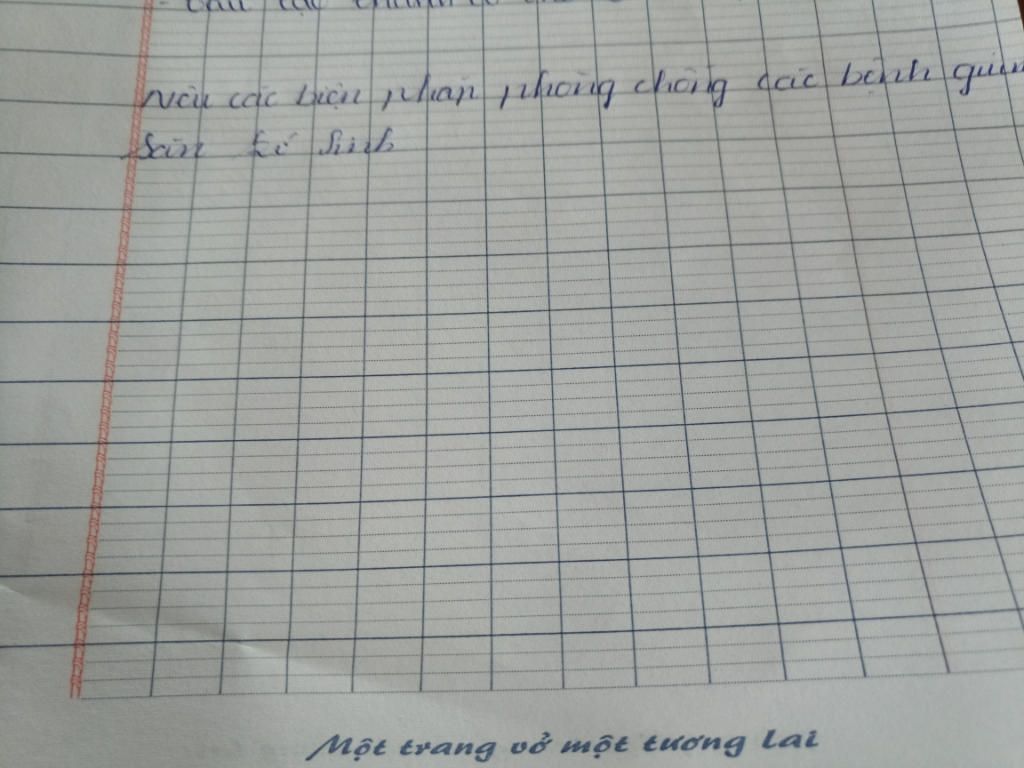 Nêu các biện pháp phòng chống các bệnh giun
sán kí sinh
Một trang vở một tương lai